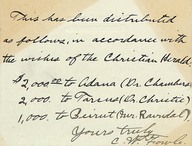 This has been distributed
as follows, in accordance with
the wishes of the Christian Herald.
$2,000.00 to Adana (Dr. Chambers
2,000. to Tarsus (Dr. Christie)
1,000. to Beirut (Mr. Rawdal)
Yours truly
C. W. Fowle